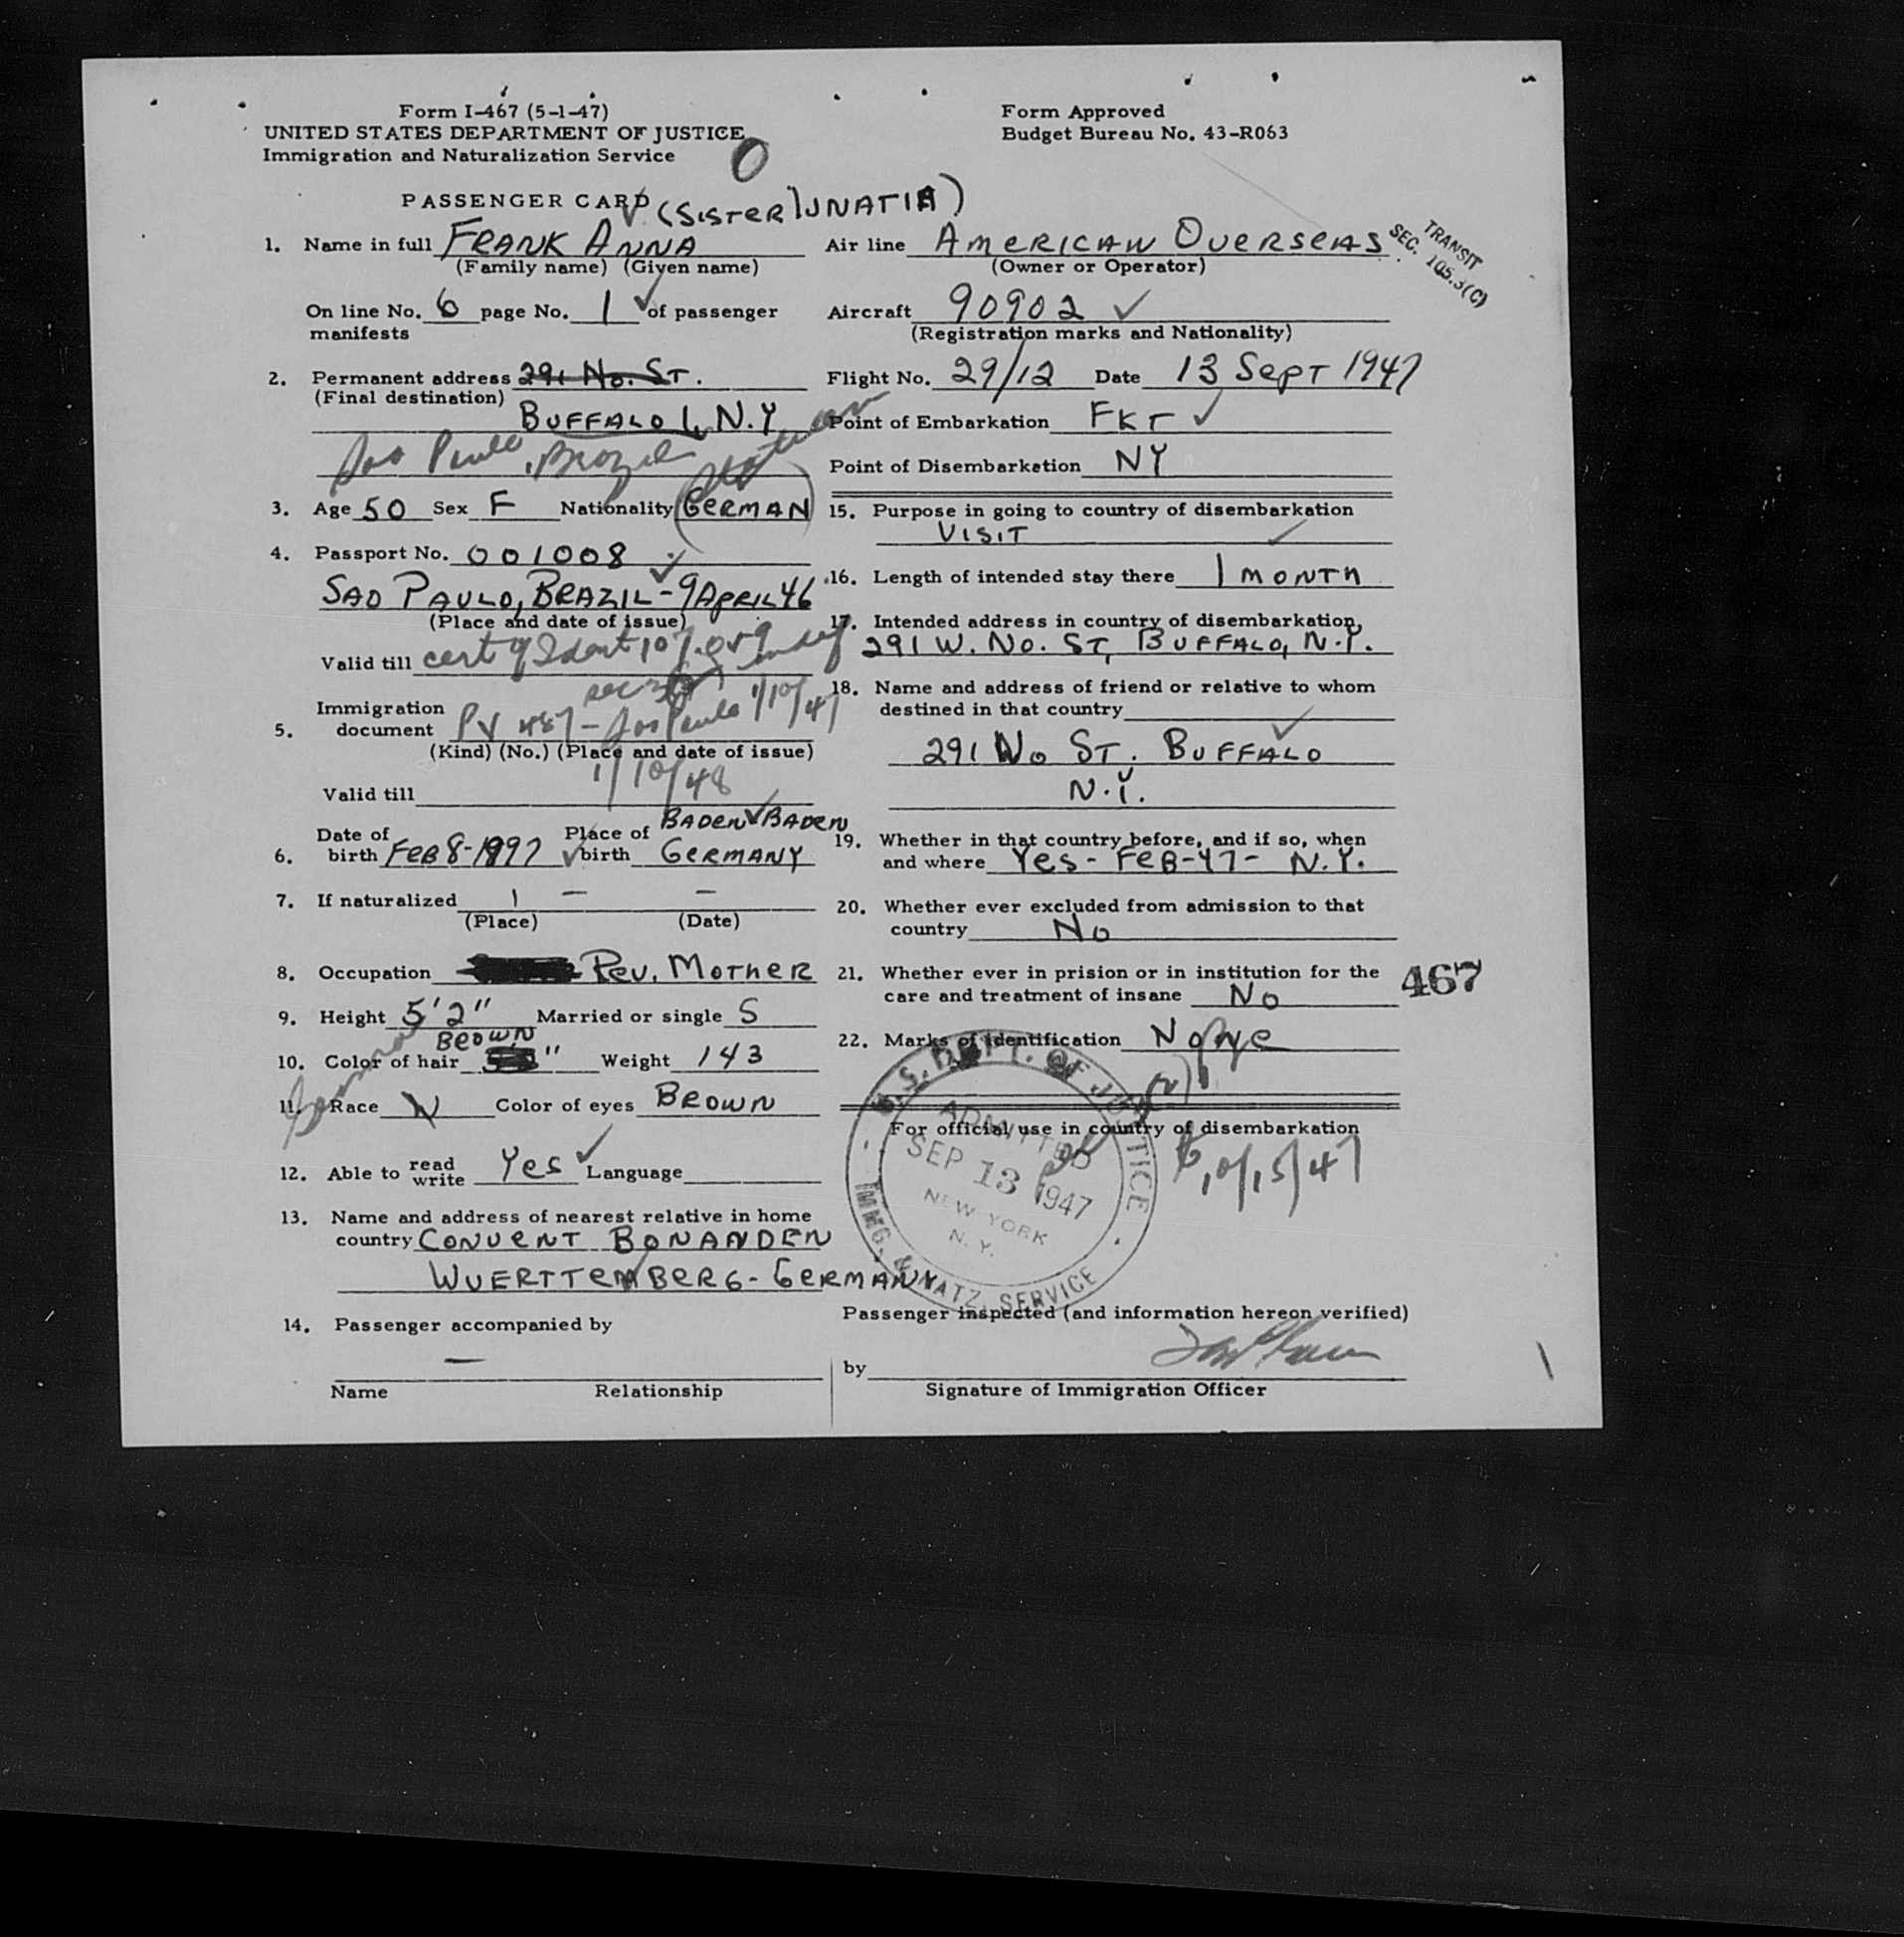 Form I-467 (5-1-47)
UNITED STATES DEPARTMENT OF JUSTICE
Immigration and Naturalization Service
Form Approved
Budget Bureau No. 43-R063
0
PASSENGER CARD
(SISTER
1. Name in full FRANK ANNA
(Family name) (Given name)
On line No. 6 page No. 1 of passenger
manifests
2. Permanent address 291 No. ST.
(Final destination)
BUFFALO N.Y
Sao Paulo, Brazil
3. Age 50 Sex F Nationality GERMAN
4. Passport No. 001008
SAO PAULO, BRAZIL - 9 APRIL 46
(Place and date of issue)
Valid till cert of Ident
5. Immigration
document PV 487 - Sao Paulo 1/10/47
(Kind) (No.) (Place and date of issue)
1/10/48
Valid till
6. Date of birth FEB 8-1897 Place of birth BADEN BADEN
GERMANY
7. If naturalized
(Place) (Date)
8. Occupation REV. MOTHER
9. Height 5'2" Married or single S
BROWN
10. Color of hair Weight 143
11. Race W Color of eyes BROWN
12. Able to read write Yes Language
13. Name and address of nearest relative in home
country CONVENT BONANDEN
WUERTTEMBERG - GERMANY
14. Passenger accompanied by
Name Relationship
Air line AMERICAN OVERSEAS
(Owner or Operator)
TRANSIT
SEC. 105.3(C)
Aircraft 90902
(Registration marks and Nationality)
Flight No. 29/12 Date 13 SEPT 1947
Point of Embarkation FKT
Point of Disembarkation NY
15. Purpose in going to country of disembarkation
VISIT
16. Length of intended stay there 1 MONTH
17. Intended address in country of disembarkation,
291 W. NO. ST, BUFFALO, N.Y.
18. Name and address of friend or relative to whom
destined in that country
291 No ST. BUFFALO
N.Y.
19. Whether in that country before, and if so, when
and where YES - FEB-47 - N.Y.
20. Whether ever excluded from admission to that
country No
21. Whether ever in prision or in institution for the
care and treatment of insane No
467
22. Marks of identification NONE
For official use in country of disembarkation
U.S. DEPT. OF JUSTICE
ADMITTED
SEP 13 1947
NEW YORK
N. Y.
IMMG. & NATZ. SERVICE
10/15/47
Passenger inspected (and information hereon verified)
by
Signature of Immigration Officer